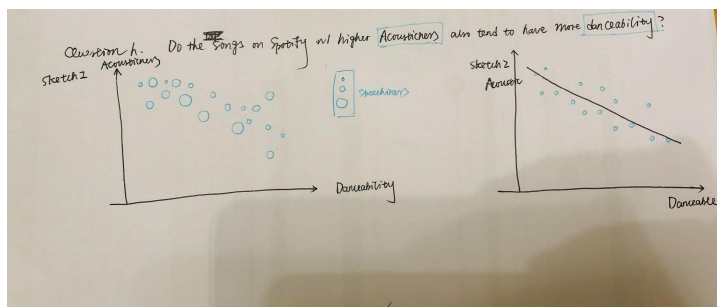 Question h. Do the songs on Spotify w/ higher Acousticness also tend to have more danceability?
Sketch 1
Acousticness
Speechiness
Danceability
Sketch 2
Acoustic
Danceable